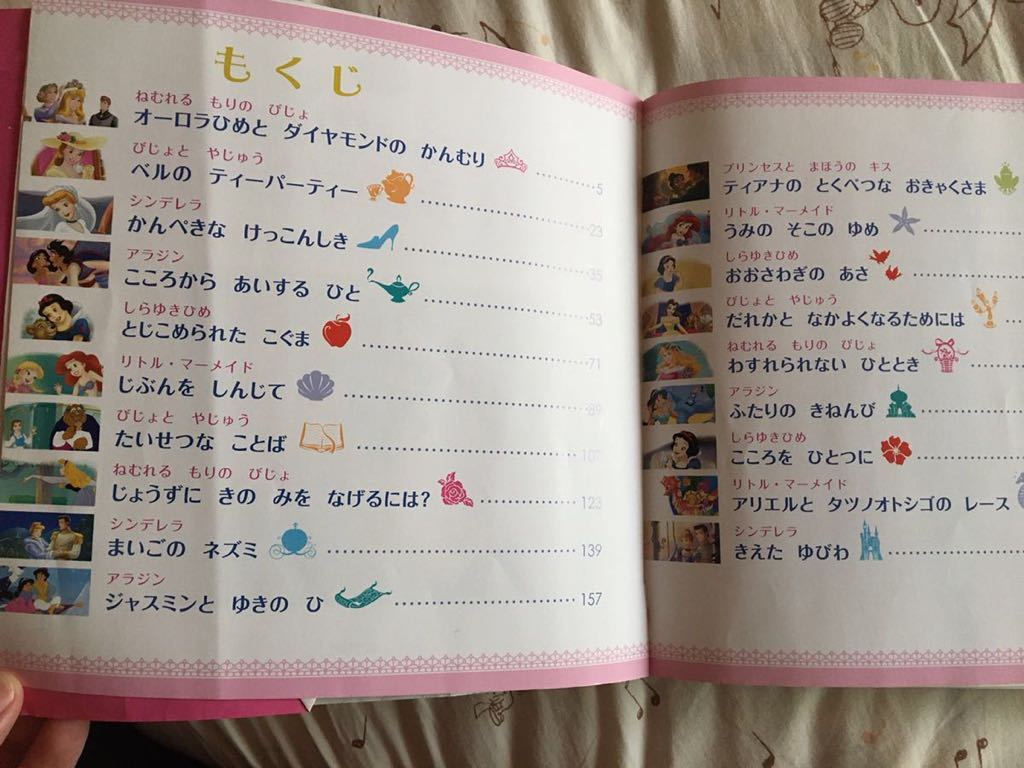 もくじ
ねむれる もりの びじょ
オーロラひめと ダイヤモンドの かんむり 5
びじょと やじゅう
ベルの ティーパーティー 23
シンデレラ
かんぺきな けっこんしき 35
アラジン
こころから あいする ひと 53
しらゆきひめ
とじこめられた こぐま 71
リトル・マーメイド
じぶんを しんじて 89
びじょと やじゅう
たいせつな ことば
ねむれる もりの びじょ
じょうずに きの みを なげるには? 123
シンデレラ
まいごの ネズミ 139
アラジン
ジャスミンと ゆきの ひ 157
プリンセスと まほうの キス
ティアナの とくべつな おきゃくさま
リトル・マーメイド
うみの そこの ゆめ
しらゆきひめ
おおさわぎの あさ
びじょと やじゅう
だれかと なかよくなるためには
ねむれる もりの びじょ
わすれられない ひととき
アラジン
ふたりの きねんび
しらゆきひめ
こころを ひとつに
リトル・マーメイド
アリエルと タツノオトシゴの レース
シンデレラ
きえた ゆびわ